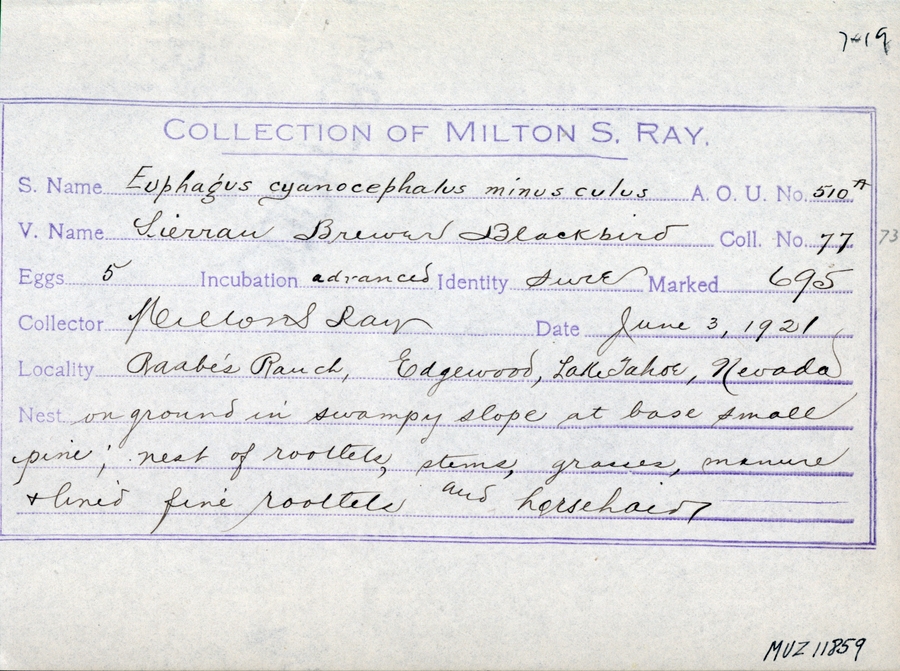 7-19
COLLECTION OF MILTON S. RAY.
S. Name Euphagus cyanocephalus minusculus A. O. U. No. 510A
V. Name Sierran Brewer Blackbird Coll. No. 77 73
Eggs 5 Incubation advanced Identity sure Marked 695
Collector Milton S Ray Date June 3, 1921
Locality Raabe's Ranch, Edgewood, Lake Tahoe, Nevada
Nest on ground in swampy slope at base small
pine; nest of rootlets, stems, grasses, manure
& lined fine rootlets and horsehair
MVZ 11859